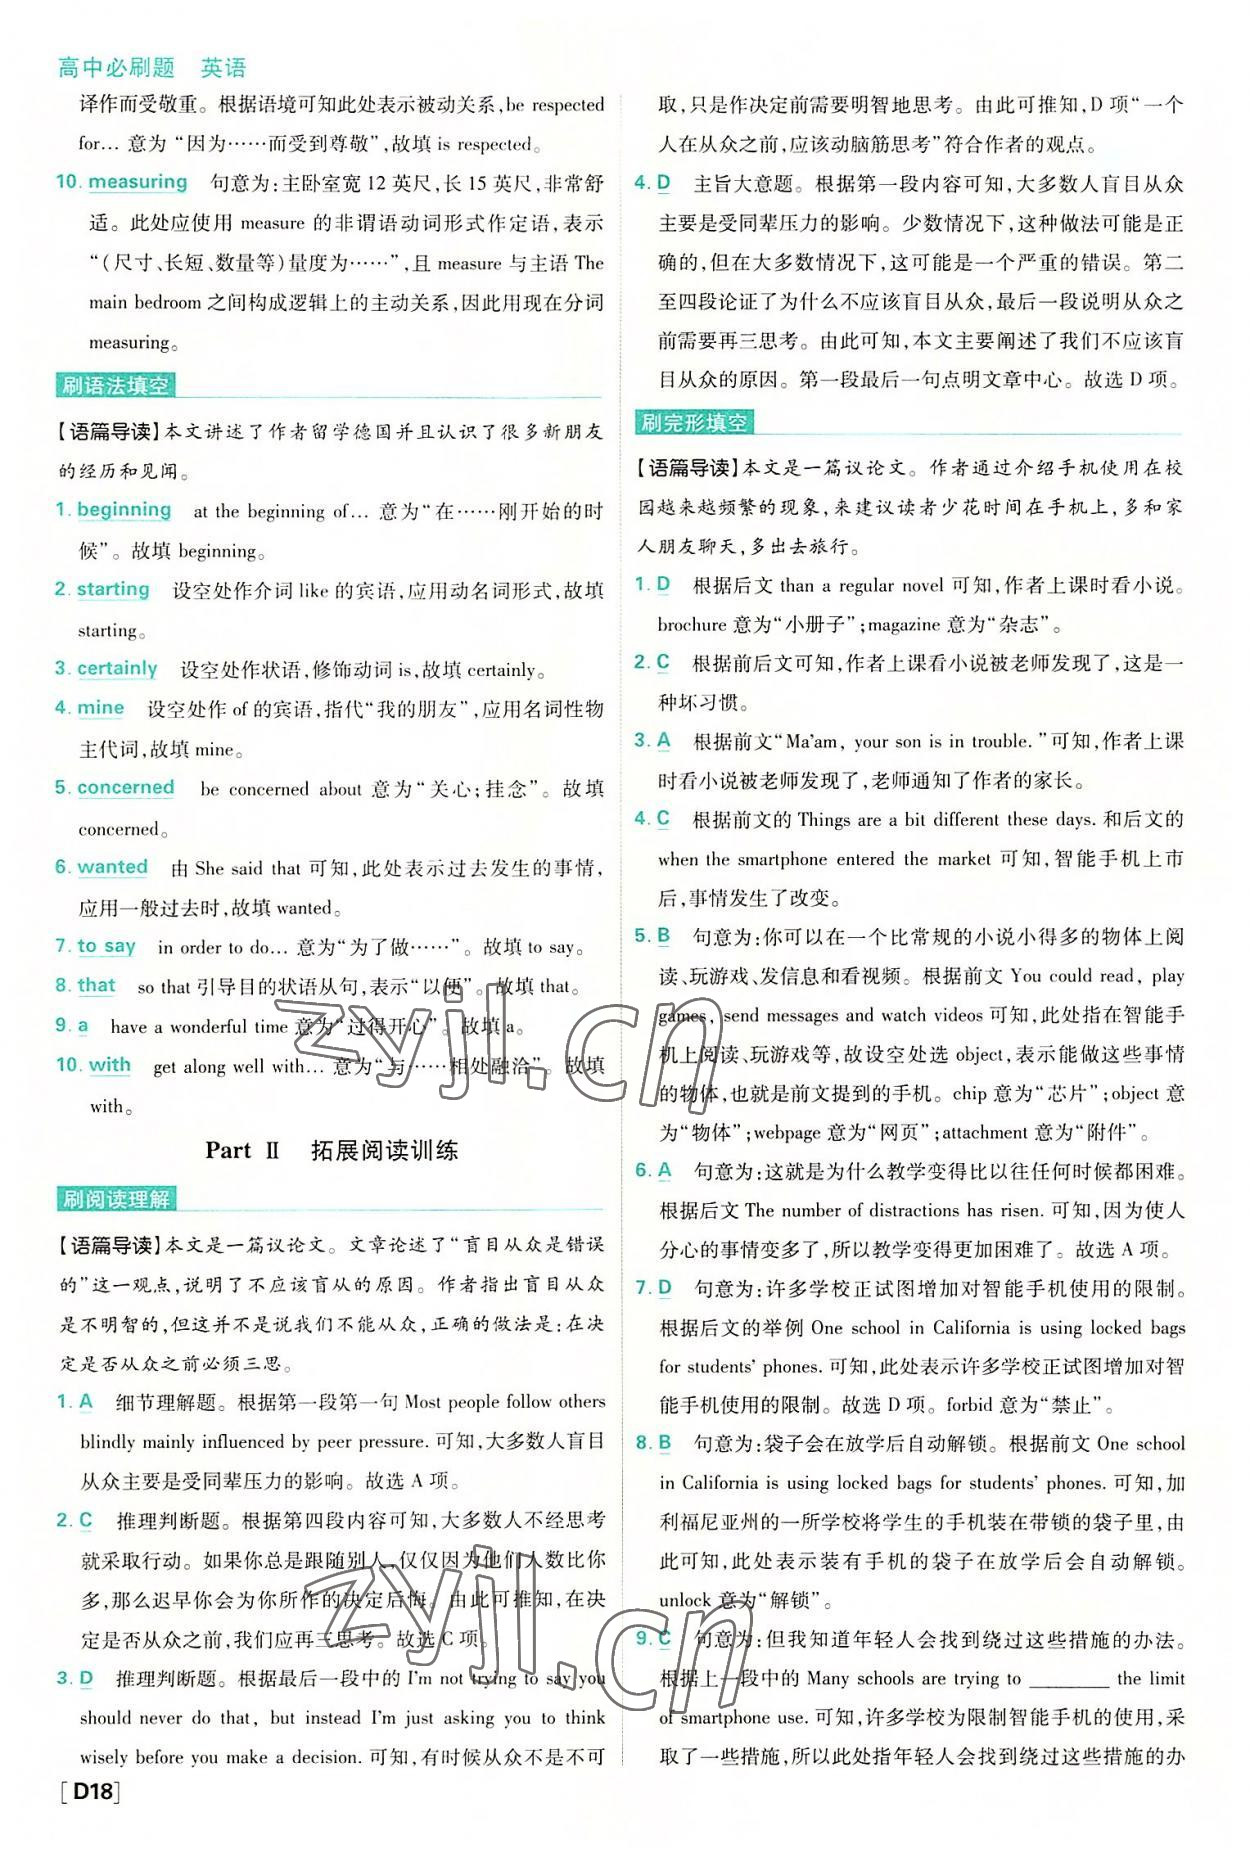 高中必刷题 英语
译作而受敬重。根据语境可知此处表示被动关系,be respected
for… 意为 “因为……而受到尊敬”,故填 is respected。
10. measuring 句意为:主卧室宽 12 英尺,长 15 英尺,非常舒
适。此处应使用 measure 的非谓语动词形式作定语,表示
“(尺寸、长短、数量等)量度为……”,且 measure 与主语 The
main bedroom 之间构成逻辑上的主动关系,因此用现在分词
measuring。
刷语法填空
【语篇导读】本文讲述了作者留学德国并且认识了很多新朋友
的经历和见闻。
1. beginning at the beginning of… 意为“在……刚开始的时
候”。故填 beginning。
2. starting 设空处作介词 like 的宾语,应用动名词形式,故填
starting。
3. certainly 设空处作状语,修饰动词 is,故填 certainly。
4. mine 设空处作 of 的宾语,指代“我的朋友”,应用名词性物
主代词,故填 mine。
5. concerned be concerned about 意为“关心;挂念”。故填
concerned。
6. wanted 由 She said that 可知,此处表示过去发生的事情,
应用一般过去时,故填 wanted。
7. to say in order to do… 意为“为了做……”。故填 to say。
8. that so that 引导目的状语从句,表示“以便”。故填 that。
9. a have a wonderful time 意为“过得开心”。故填 a。
10. with get along well with… 意为“与……相处融洽”。故填
with。
Part Ⅱ 拓展阅读训练
刷阅读理解
【语篇导读】本文是一篇议论文。文章论述了“盲目从众是错误
的”这一观点,说明了不应该盲从的原因。作者指出盲目从众
是不明智的,但这并不是说我们不能从众,正确的做法是:在决
定是否从众之前必须三思。
1. A 细节理解题。根据第一段第一句 Most people follow others
blindly mainly influenced by peer pressure. 可知,大多数人盲目
从众主要是受同辈压力的影响。故选 A 项。
2. C 推理判断题。根据第四段内容可知,大多数人不经思考
就采取行动。如果你总是跟随别人,仅仅因为他们人数比你
多,那么迟早你会为你所作的决定后悔。由此可推知,在决
定是否从众之前,我们应再三思考。故选 C 项。
3. D 推理判断题。根据最后一段中的 I'm not trying to say you
should never do that, but instead I'm just asking you to think
wisely before you make a decision. 可知,有时候从众不是不可
[D18]
取,只是作决定前需要明智地思考。由此可推知,D 项“一个
人在从众之前,应该动脑筋思考”符合作者的观点。
4. D 主旨大意题。根据第一段内容可知,大多数人盲目从众
主要是受同辈压力的影响。少数情况下,这种做法可能是正
确的,但在大多数情况下,这可能是一个严重的错误。第二
至四段论证了为什么不应该盲目从众,最后一段说明从众之
前需要再三思考。由此可知,本文主要阐述了我们不应该盲
目从众的原因。第一段最后一句点明文章中心。故选 D 项。
刷完形填空
【语篇导读】本文是一篇议论文。作者通过介绍手机使用在校
园越来越频繁的现象,来建议读者少花时间在手机上,多和家
人朋友聊天,多出去旅行。
1. D 根据后文 than a regular novel 可知,作者上课时看小说。
brochure 意为“小册子”;magazine 意为“杂志”。
2. C 根据前后文可知,作者上课看小说被老师发现了,这是一
种坏习惯。
3. A 根据前文“Ma'am, your son is in trouble. ”可知,作者上课
时看小说被老师发现了,老师通知了作者的家长。
4. C 根据前文的 Things are a bit different these days. 和后文的
when the smartphone entered the market 可知,智能手机上市
后,事情发生了改变。
5. B 句意为:你可以在一个比常规的小说小得多的物体上阅
读、玩游戏、发信息和看视频。根据前文 You could read, play
games, send messages and watch videos 可知,此处指在智能手
机上阅读、玩游戏等,故设空处选 object,表示能做这些事情
的物体,也就是前文提到的手机。chip 意为“芯片”;object 意
为“物体”;webpage 意为“网页”;attachment 意为“附件”。
6. A 句意为:这就是为什么教学变得比以往任何时候都困难。
根据后文 The number of distractions has risen. 可知,因为使人
分心的事情变多了,所以教学变得更加困难了。故选 A 项。
7. D 句意为:许多学校正试图增加对智能手机使用的限制。
根据后文的举例 One school in California is using locked bags
for students' phones. 可知,此处表示许多学校正试图增加对智
能手机使用的限制。故选 D 项。forbid 意为“禁止”。
8. B 句意为:袋子会在放学后自动解锁。根据前文 One school
in California is using locked bags for students' phones. 可知,加
利福尼亚州的一所学校将学生的手机装在带锁的袋子里,由
此可知,此处表示装有手机的袋子在放学后会自动解锁。
unlock 意为“解锁”。
9. C 句意为:但我知道年轻人会找到绕过这些措施的办法。
根据上一段中的 Many schools are trying to ________ the limit
of smartphone use. 可知,许多学校为限制智能手机的使用,采
取了一些措施,所以此处指年轻人会找到绕过这些措施的办
zyjl.cn
zyjl.cn